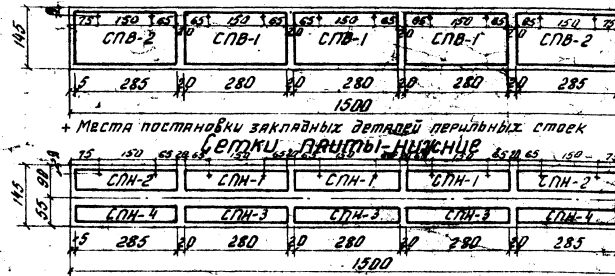 75 150 65 20 65 150 65 20 65 150 65 20 65 150 65 20 65 150 75
145 СПВ-2 СПВ-1 СПВ-1 СПВ-1 СПВ-2
5 285 20 280 20 280 20 280 20 285
1500
+ Места постановки закладных деталей перильных стоек
Сетки плиты-нижние
75 150 65 20 65 150 65 150 65 150 65 20 65 150 75
145 90 СПН-2 СПН-1 СПН-1 СПН-1 СПН-2
55 СПН-4 СПН-3 СПН-3 СПН-3 СПН-4
5 285 20 280 20 280 20 280 20 285
1500